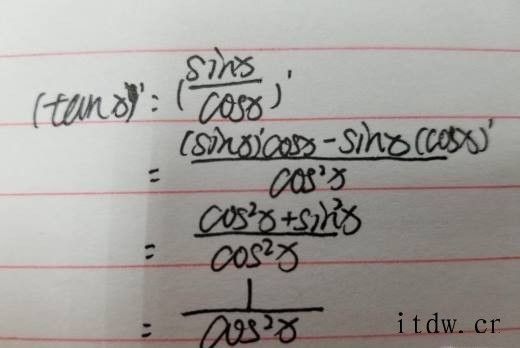 (tanx)' = (sinx/cosx)'
= (sinx)'cosx - sinx(cosx)'/cos²x
= cos²x + sin²x/cos²x
= 1/cos²x
itdw.cr